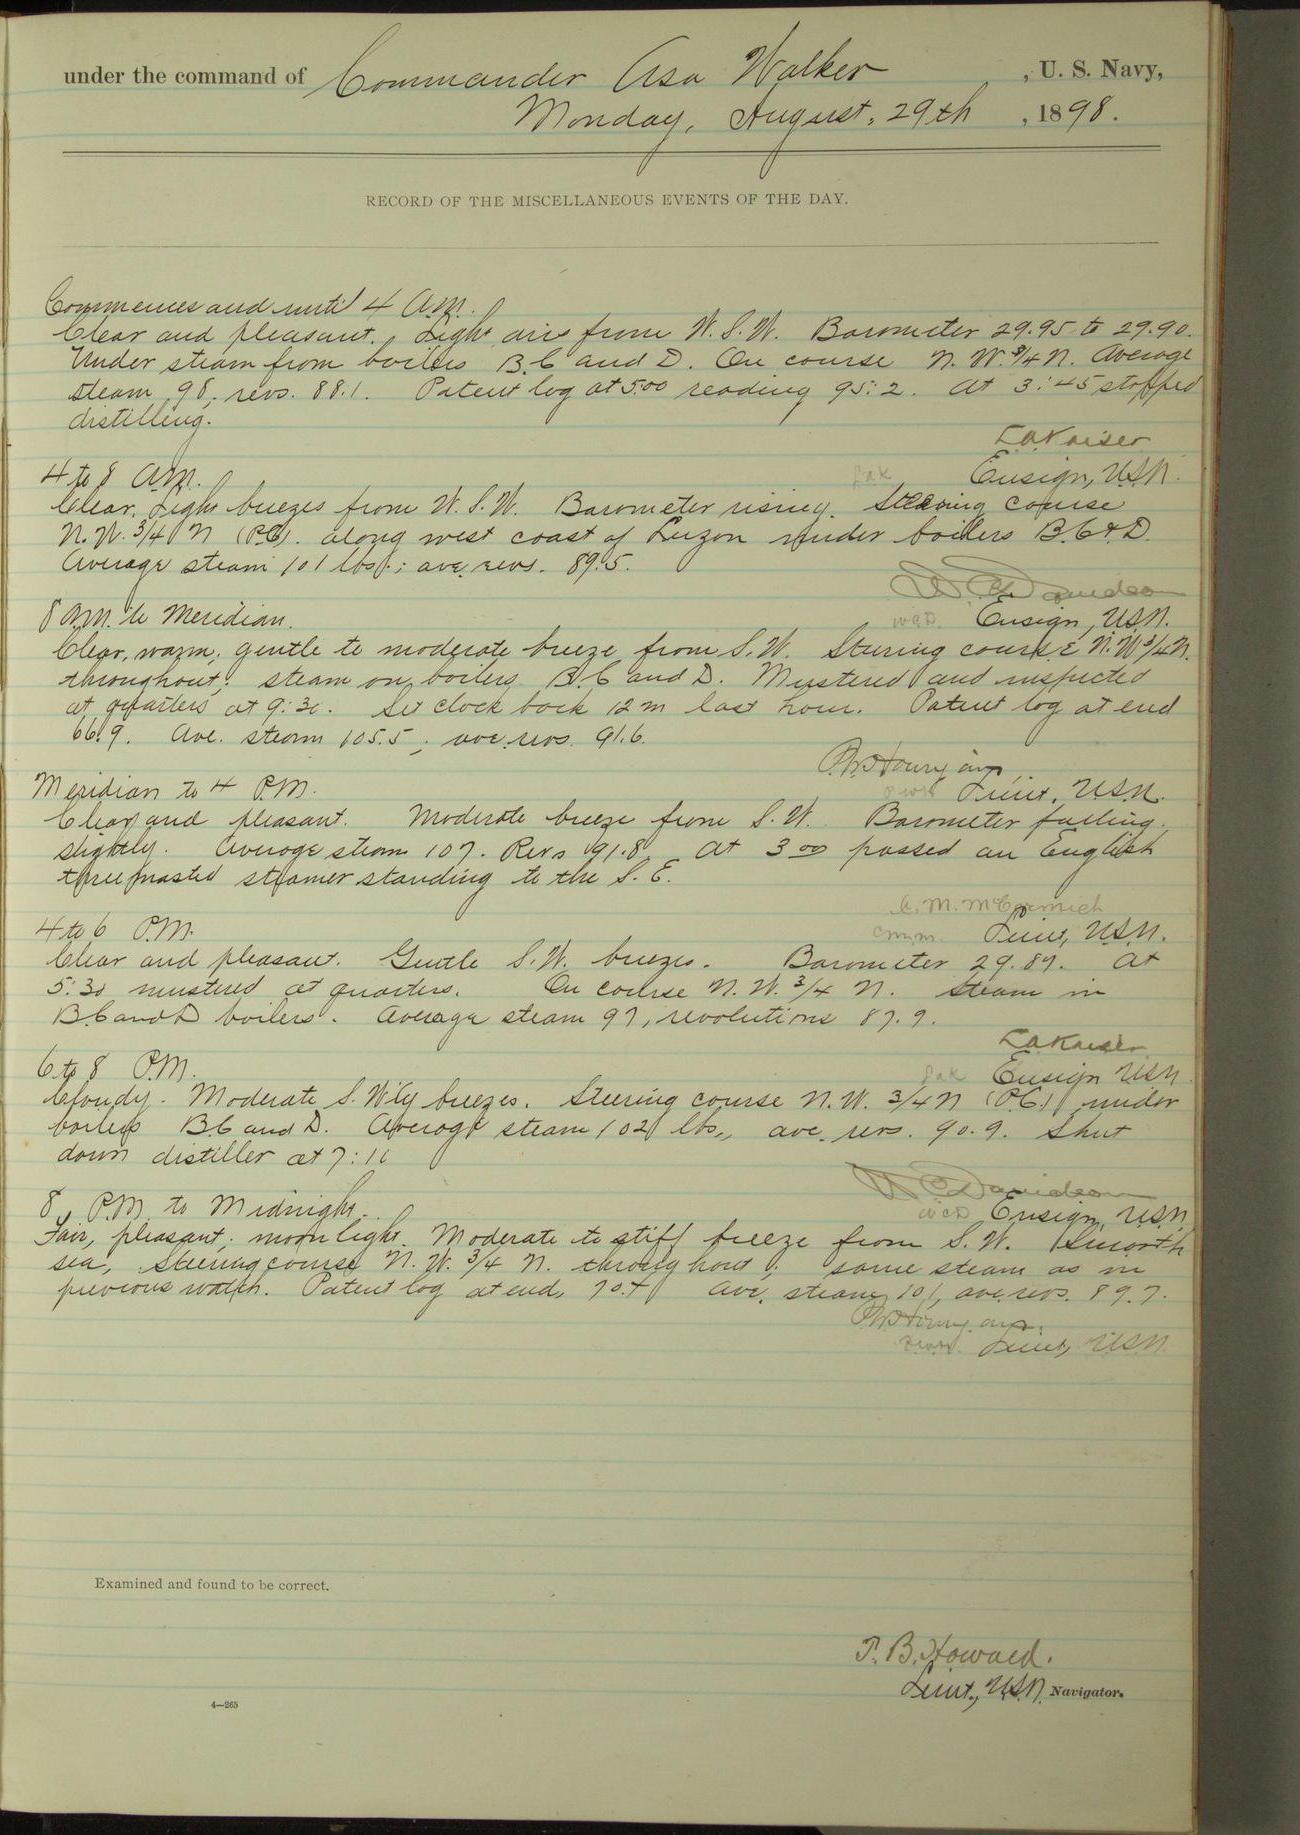 under the command of Commander Asa Walker, U. S. Navy,
Monday, August, 29th, 1898.
RECORD OF THE MISCELLANEOUS EVENTS OF THE DAY.
Commences and until 4 A.M.
Clear and pleasant. Light airs from W.S.W. Barometer 29.95 to 29.90.
Under steam from boilers B.C and D. On course N.W. 3/4 N. Average
steam 98, revs. 88.1. Patent log at 5:00 reading 95:2. At 3:45 stopped
distilling.
L A Kaiser
4 to 8 A.M.
lak Ensign, U.S.N.
Clear. Light breezes from W.S.W. Barometer rising. Steering course
N.W. 3/4 N (P.C). along west coast of Luzon under boilers B.C & D.
Average steam 101 lbs.; ave. revs. 89.5.
W C Davidson
8 A.M. to Meridian.
WCD. Ensign, U.S.N.
Clear, warm; gentle to moderate breeze from S.W. Steering course N.W 3/4 N.
throughout; steam on boilers B.C and D. Mustered and inspected
at quarters at 9:30. Set clock back 12m last hour. Patent log at end
66.9. Ave. steam 105.5; ave. revs. 91.6.
Meridian to 4 P.M.
Lieut. U.S.N.
Clear and pleasant. Moderate breeze from S.W. Barometer falling
slightly. Average steam 107. Revs 91.8 At 3 00 passed an English
three masted steamer standing to the S.E.
C. M. McCormick
4 to 6 P.M.
cmm. Lieut, U.S.N.
Clear and pleasant. Gentle S.W. breezes. Barometer 29.87. At
5:30 mustered at quarters. On course N.W. 3/4 N. Steam in
B.C and D boilers. Average steam 97, revolutions 87.9.
L A Kaiser
6 to 8 P.M.
lak Ensign USN.
Cloudy. Moderate S.W'ly breezes. Steering course N.W. 3/4 N (P.C.) under
boilers B.C and D. Average steam 102 lbs., ave. revs. 90.9. Shut
down distiller at 7:10
W C Davidson
8 P.M. to Midnight.
WCD Ensign, U.S.N.
Fair, pleasant; moonlight. Moderate to stiff breeze from S.W. Smooth
sea, Steering course N.W. 3/4 N. throughout; same steam as in
previous watch. Patent log at end, 70.4 Ave. steam 101, ave. revs. 89.7.
Lieut, U.S.N.
Examined and found to be correct.
T. B. Howard.
Lieut., U.S.N. Navigator.
4—265